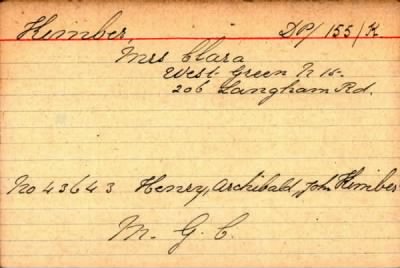 Kimber, DP/155/K.
Mrs Clara
West Green N 15.
206 Langham Rd.
No 43643 Henry, Archibald, John Kimber
M. G. C.